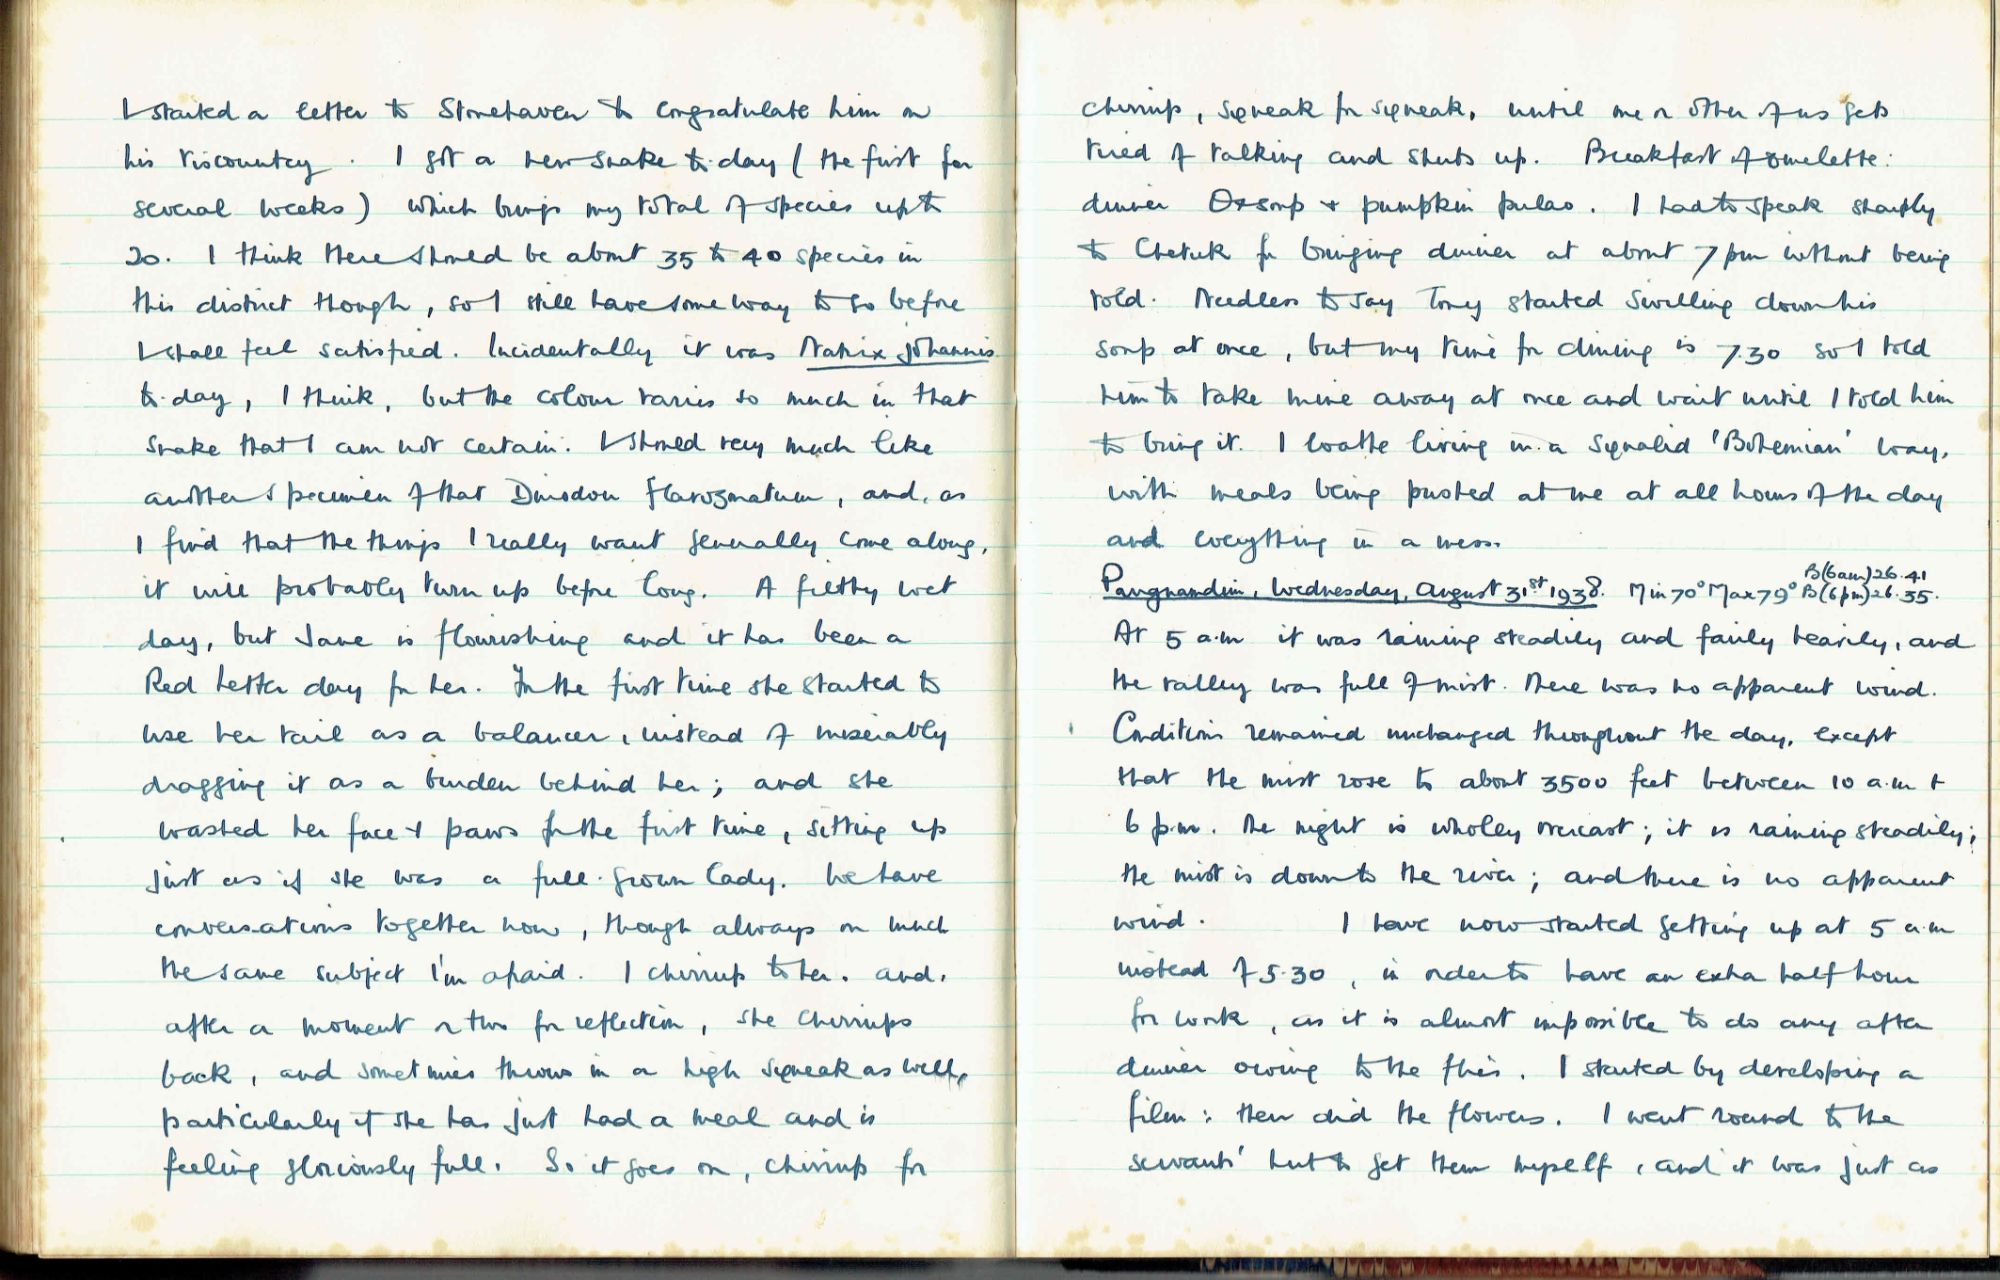 I started a letter to Stonehaven to congratulate him on
his viscountcy. I got a new snake to-day (the first for
several weeks) which brings my total of species up to
20. I think there should be about 35 to 40 species in
this district though, so I still have some way to go before
I shall feel satisfied. Incidentally it was Natrix johannis
to-day, I think, but the colour varies so much in that
snake that I am not certain. I should very much like
another specimen of that Dinodon flavozonatum, and, as
I find that the things I really want generally come along,
it will probably turn up before long. A filthy wet
day, but Jane is flourishing and it has been a
Red Letter day for her. For the first time she started to
use her tail as a balancer, instead of miserably
dragging it as a burden behind her; and she
washed her face & paws for the first time, sitting up
just as if she was a full-grown lady. We have
conversations together now, though always on much
the same subject I'm afraid. I chirrup to her, and,
after a moment or two for reflection, she chirrups
back, and sometimes throws in a high squeak as well,
particularly if she has just had a meal and is
feeling gloriously full. So it goes on, chirrup for
chirrup, squeak for squeak, until one or other of us gets
tired of talking and shuts up. Breakfast of omelette:
dinner Ox soup & pumpkin pulao. I had to speak sharply
to Chetuk for bringing dinner at about 7 pm without being
told. Needless to say Tony started swilling down his
soup at once, but my time for dining is 7.30 so I told
him to take mine away at once and wait until I told him
to bring it. I loathe living in a squalid 'Bohemian' way,
with meals being pushed at me at all hours of the day
and everything in a mess.
Pangnamdim, Wednesday, August 31st 1938. Min 70° Max 79° B(6am) 26.41 B(6pm) 26.35.
At 5 a.m it was raining steadily and fairly heavily, and
the valley was full of mist. There was no apparent wind.
Conditions remained unchanged throughout the day, except
that the mist rose to about 3500 feet between 10 a.m &
6 p.m. The night is wholey overcast; it is raining steadily;
the mist is down to the river; and there is no apparent
wind. I have now started getting up at 5 a.m
instead of 5.30, in order to have an extra half hour
for work, as it is almost impossible to do any after
dinner owing to the flies. I started by developing a
film: then did the flowers. I went round to the
servants' hut to get them myself, and it was just as